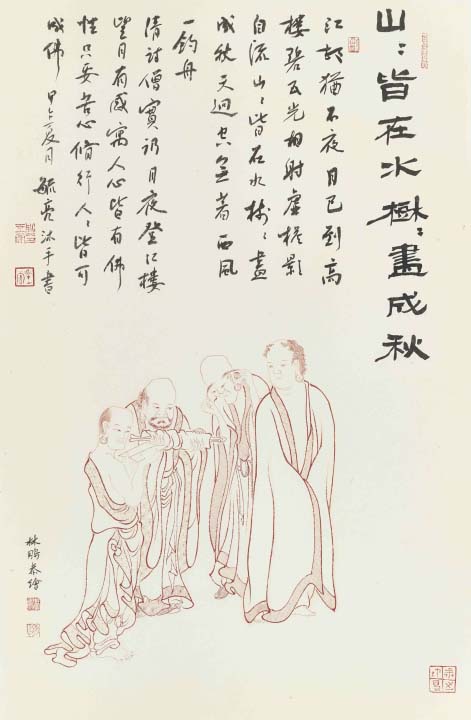 山〻皆在水樹〻盡成秋
江邨猶不夜月已到高
樓碧瓦光相射虛檐影
自流山〻皆在水樹〻盡
成秋天迥空無著西風
一釣舟
清詩僧實訒月夜登江樓
望月有感寓人心皆有佛
性只要苦心修行人〻皆可
成佛 甲午夏月 毓亮沐手書
林鵬恭繪